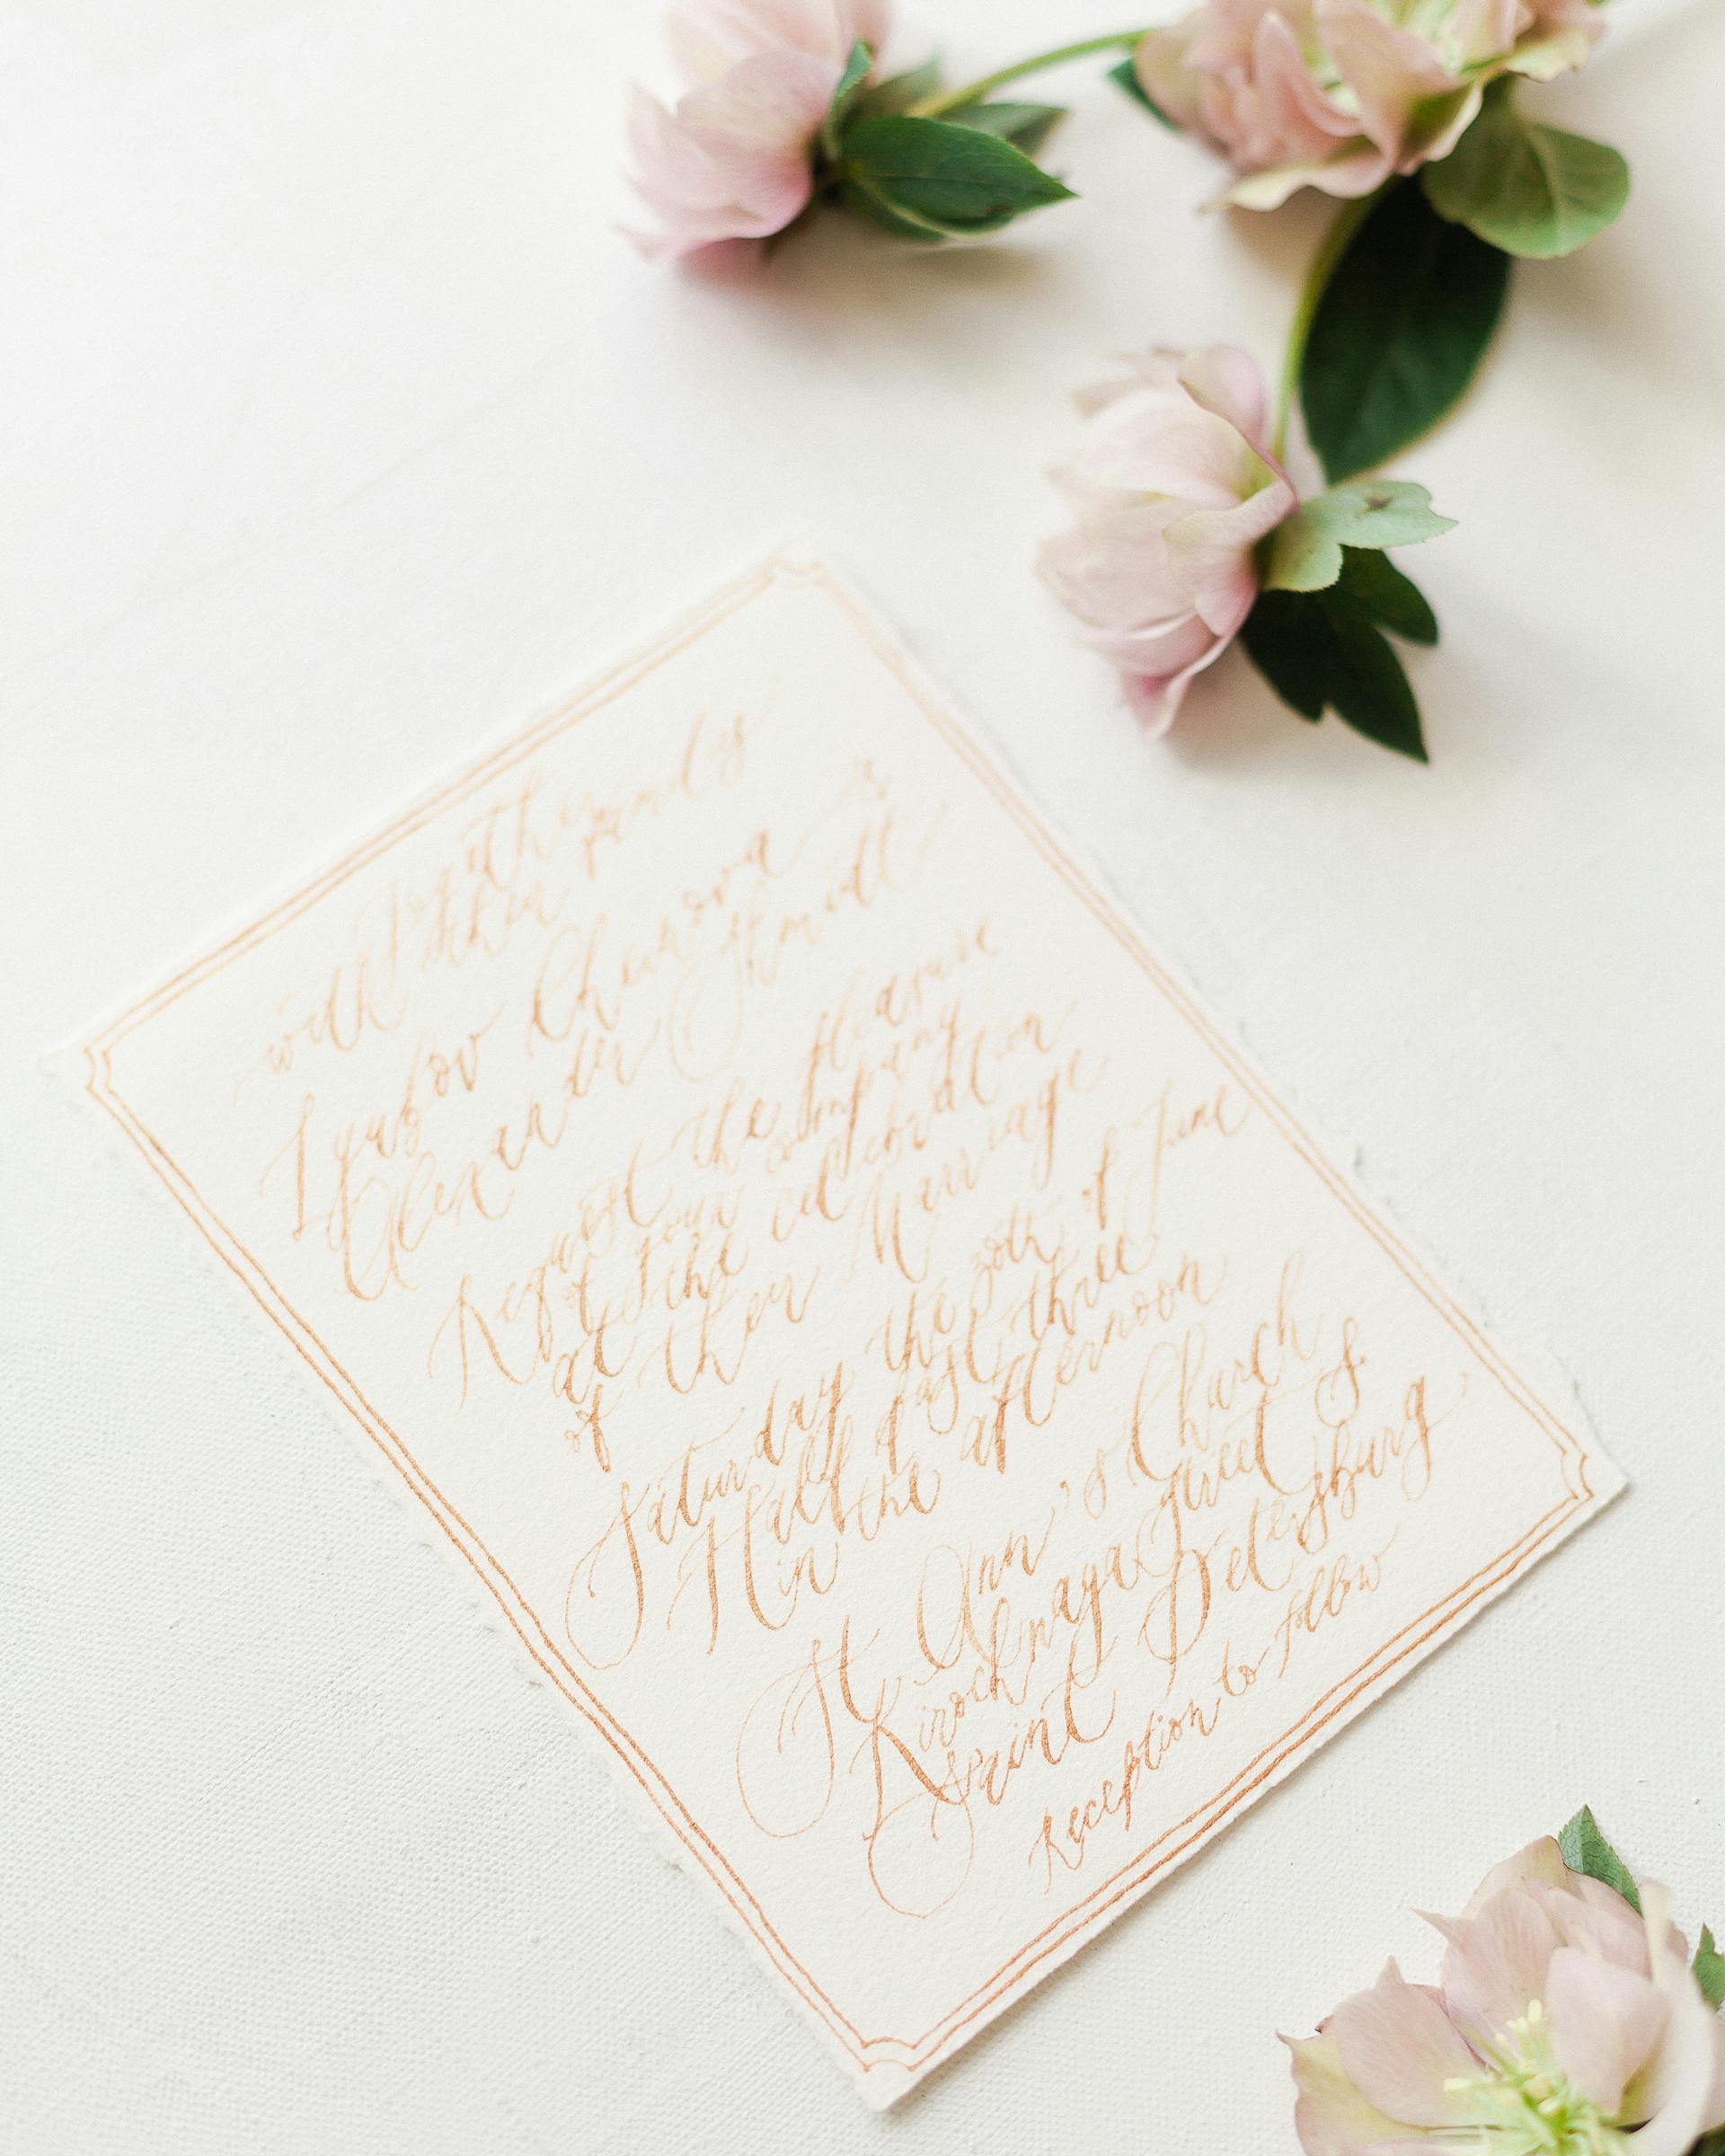 together
with their parents
Lyubov Chernova &
Alexander Shmidt
Request the pleasure
of your company
at the celebration
of their Marriage
Saturday the 20th of June
Half past three
in the afternoon
St Ann's Church
Kirochnaya street 8
Saint Petersburg
Reception to follow